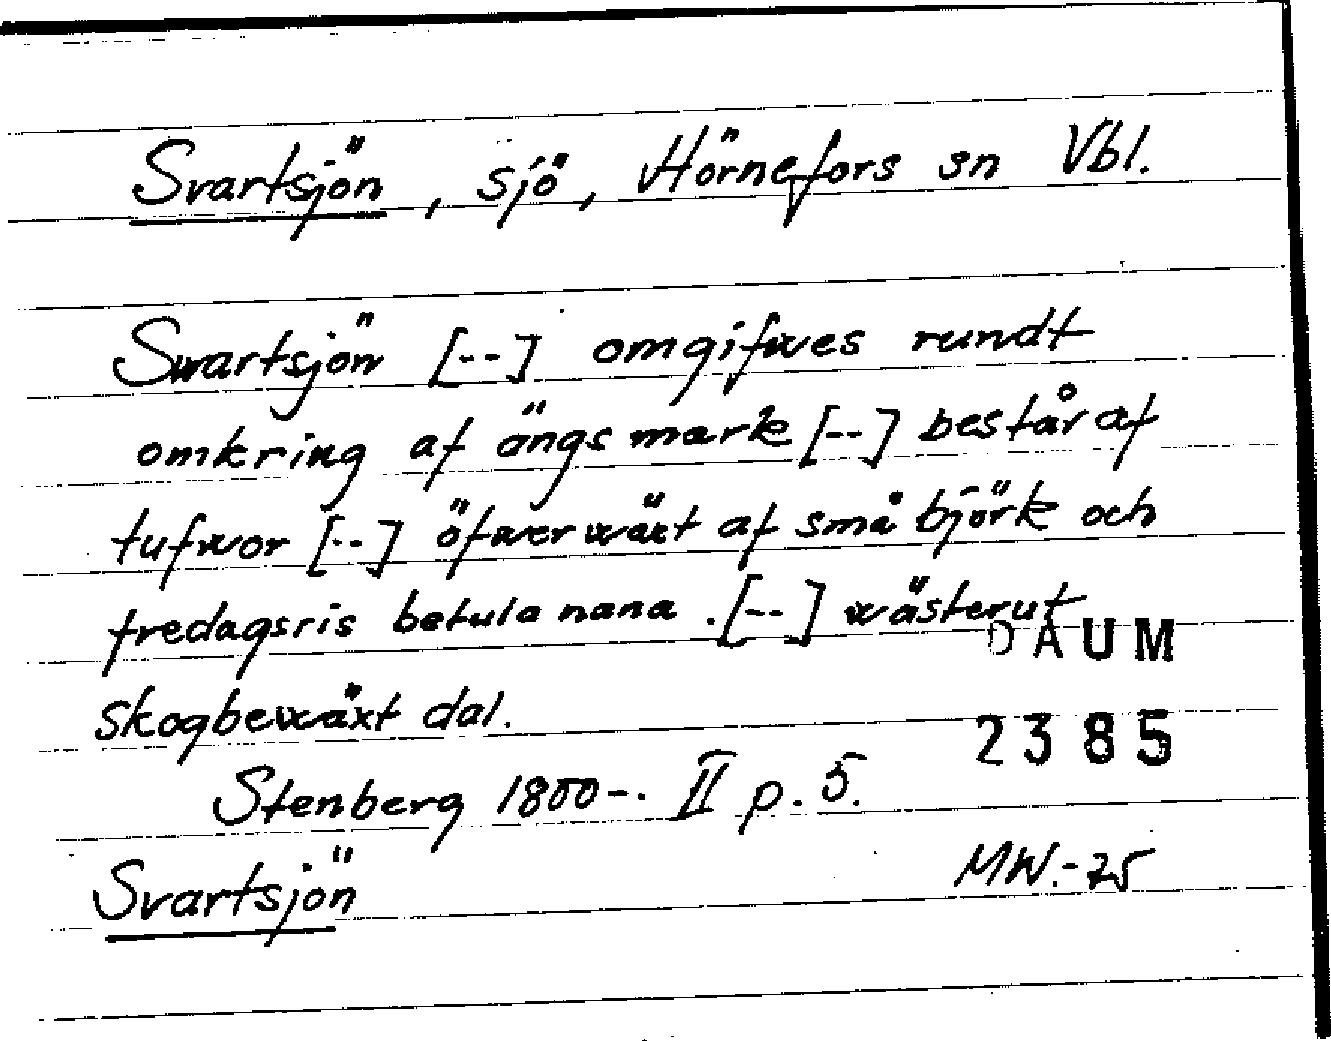 Svartsjön, sjö, Hörnefors sn Vbl.
Swartsjön [--] omgifwes rundt
omkring af ängsmark [--] består af
tufwor [--] öfwerwäxt af små björk och
fredagsris betula nana. [--] wästerut
DAUM
skogbewäxt dal.
2385
Stenberg 1800-. II p. 5.
Svartsjön
MW.-75